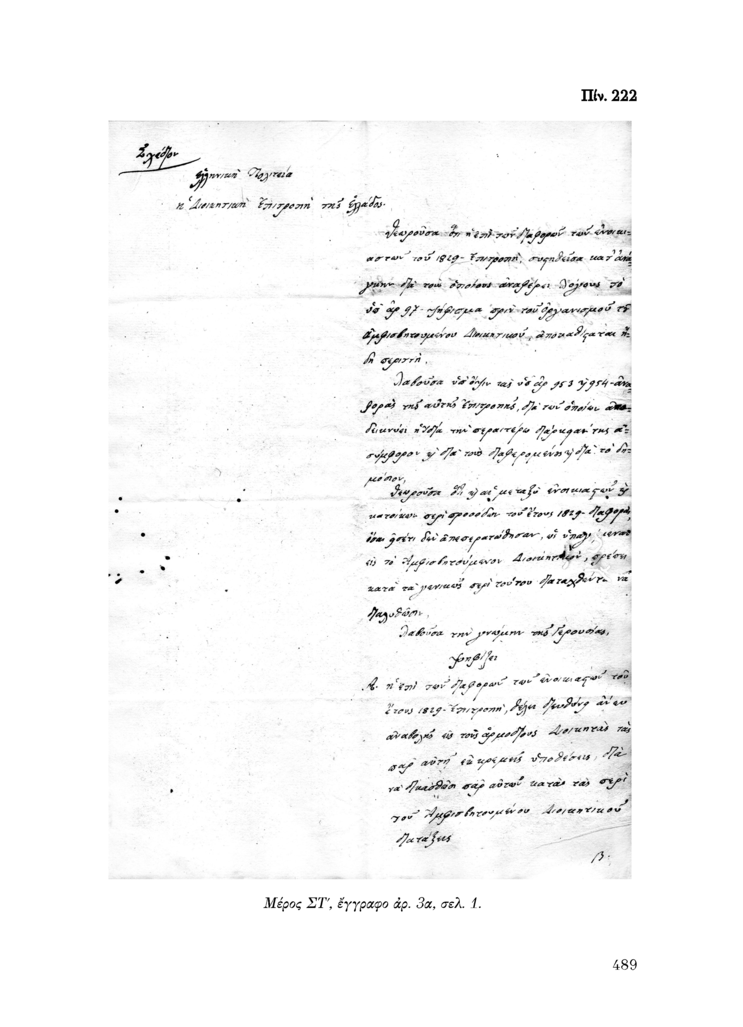 Πίν. 222
Σχέδιον
Ἑλληνικὴ Πολιτεία
Ἡ Διοικητικὴ Ἐπιτροπὴ τῆς Ἑλλάδος.
Θεωροῦσα ὅτι ἡ ἐπὶ τῶν διαφορῶν τῶν ἐνοικια-
στῶν τοῦ 1829 - Ἐπιτροπὴ, συστηθεῖσα κατ' ἀνά-
γκην διὰ τοὺς ὁποίους ἀναφέρει λόγους τὸ
ὑπ' ἀρ 97 - ψήφισμα πρὶν τοῦ ὀργανισμοῦ τοῦ
Ἀμφισβητουμένου Διοικητικοῦ, ἀποκαθίσταται ἤ-
δη περιττὴ.
Λαβοῦσα ὑπ' ὄψιν τὰς ὑπ' ἀρ 953 καὶ 954 - ἀνα-
φορὰς τῆς αὐτῆς Ἐπιτροπῆς, διὰ τῶν ὁποίων ἀπο-
δεικνύει ἡ ἰδία τὴν περαιτέρω διάρκειαν της ἀ-
σύμφορον καὶ διὰ τοὺς διαφερομένους καὶ διὰ τὸ δη-
μόσιον,
Θεωροῦσα ὅτι καὶ αἱ μεταξὺ ἐνοικιαστῶν καὶ
κατοίκων περὶ προσόδων τοῦ ἔτους 1829 - διαφοραὶ,
ὅσαι εἰσέτι δὲν ἀπεπερατώθησαν, ὡς
εἰς τὸ Ἀμφισβητούμενον Διοικητικὸν, πρέπει
κατὰ τὰ γενικῶς περὶ τούτου διαταχθέντα νὰ
διαλυθῶσιν.
Λαβοῦσα τὴν γνώμην τῆς Γερουσίας,
ψηφίζει
Α. Ἡ ἐπὶ τῶν διαφορῶν τῶν ἐνοικιαστῶν τοῦ
ἔτους 1829 - Ἐπιτροπὴ, θέλει διευθύνῃ ἄνευ
ἀναβολῆς εἰς τοὺς ἁρμοδίους Διοικητὰς τὰς
παρ' αὐτῇ ἐκκρεμεῖς ὑποθέσεις, διὰ
νὰ δικασθῶσι παρ' αὐτῶν κατὰ τὰς περὶ
τοῦ Ἀμφισβητουμένου Διοικητικοῦ
διατάξεις
Β.
Μέρος ΣΤ′, ἔγγραφο ἀρ. 3α, σελ. 1.
489